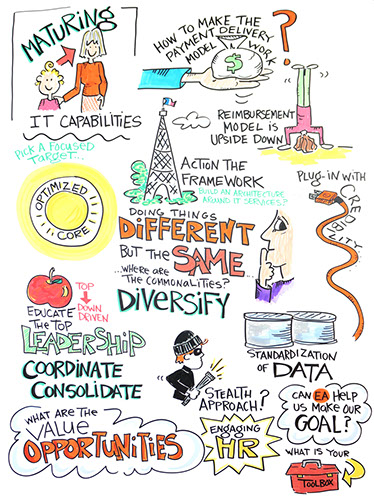 MATURING
IT CAPABILITIES
HOW TO MAKE THE
PAYMENT DELIVERY
MODEL WORK
?
$
REIMBURSEMENT
MODEL IS
UPSIDE DOWN
PICK A FOCUSED
TARGET...
OPTIMIZED
CORE
ACTION THE
FRAMEWORK
BUILD AN ARCHITECTURE
AROUND IT SERVICES?
PLUG-IN WITH
CREDIBILITY
DOING THINGS
DIFFERENT
BUT THE
SAME...
...WHERE ARE
THE COMMONALITIES?
DIVERSIFY
TOP
DOWN
DRIVEN
EDUCATE
THE TOP
LEADERSHIP
COORDINATE
CONSOLIDATE
STANDARDIZATION
OF DATA
STEALTH
APPROACH?
CAN EA HELP
US MAKE OUR
GOAL?
WHAT ARE THE
VALUE
OPPORTUNITIES
ENGAGING
HR
WHAT IS YOUR
TOOLBOX